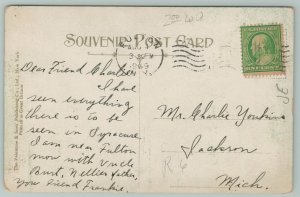 SOUVENIR POST CARD
3-PM
1909
Dear Friend Charlie:
I have
seen everything
there is to be
seen in Syracuse
I am near Fulton
now with Uncle
Burt, Nellies father,
your Friend Frankie.
Mr. Charlie
Jackson
Mich.
R. 6